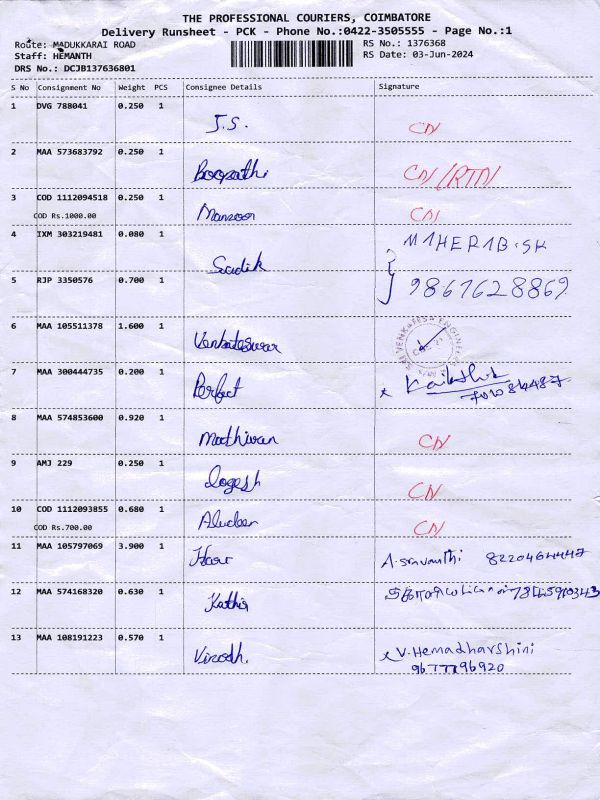 THE PROFESSIONAL COURIERS, COIMBATORE
Delivery Runsheet - PCK - Phone No.:0422-3505555 - Page No.:1
Route: MADUKKARAI ROAD RS No.: 1376368
Staff: HEMANTH RS Date: 03-Jun-2024
DRS No.: DCJB137636801
S No Consignment No Weight PCS Consignee Details Signature
1 DVG 788041 0.250 1 J.S. CN
2 MAA 573683792 0.250 1 Boopathi CN/(RTN)
3 COD 1112094518 0.250 1 Manzoor CN
COD Rs.1000.00
4 IXM 303219481 0.080 1 Sadik M1HER1B.SK
5 RJP 3350576 0.700 1 9867628869
6 MAA 105511378 1.600 1 Venkateswar
7 MAA 300444735 0.200 1 Perfect
8 MAA 574853600 0.920 1 Mathivan CN
9 AMJ 229 0.250 1 Logesh CN
10 COD 1112093855 0.680 1 CN
COD Rs.700.00
11 MAA 105797069 3.900 1 Hari A.sravanthi 8220464447
12 MAA 574168320 0.630 1 Kathir
13 MAA 108191223 0.570 1 Vinodh. x V.Hemadharshini
9677796920